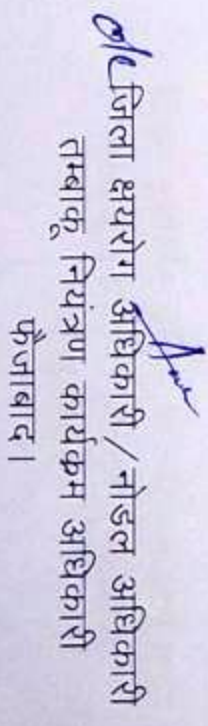 जिला क्षयरोग अधिकारी / नोडल अधिकारी
तम्बाकू नियंत्रण कार्यक्रम अधिकारी
फैजाबाद।